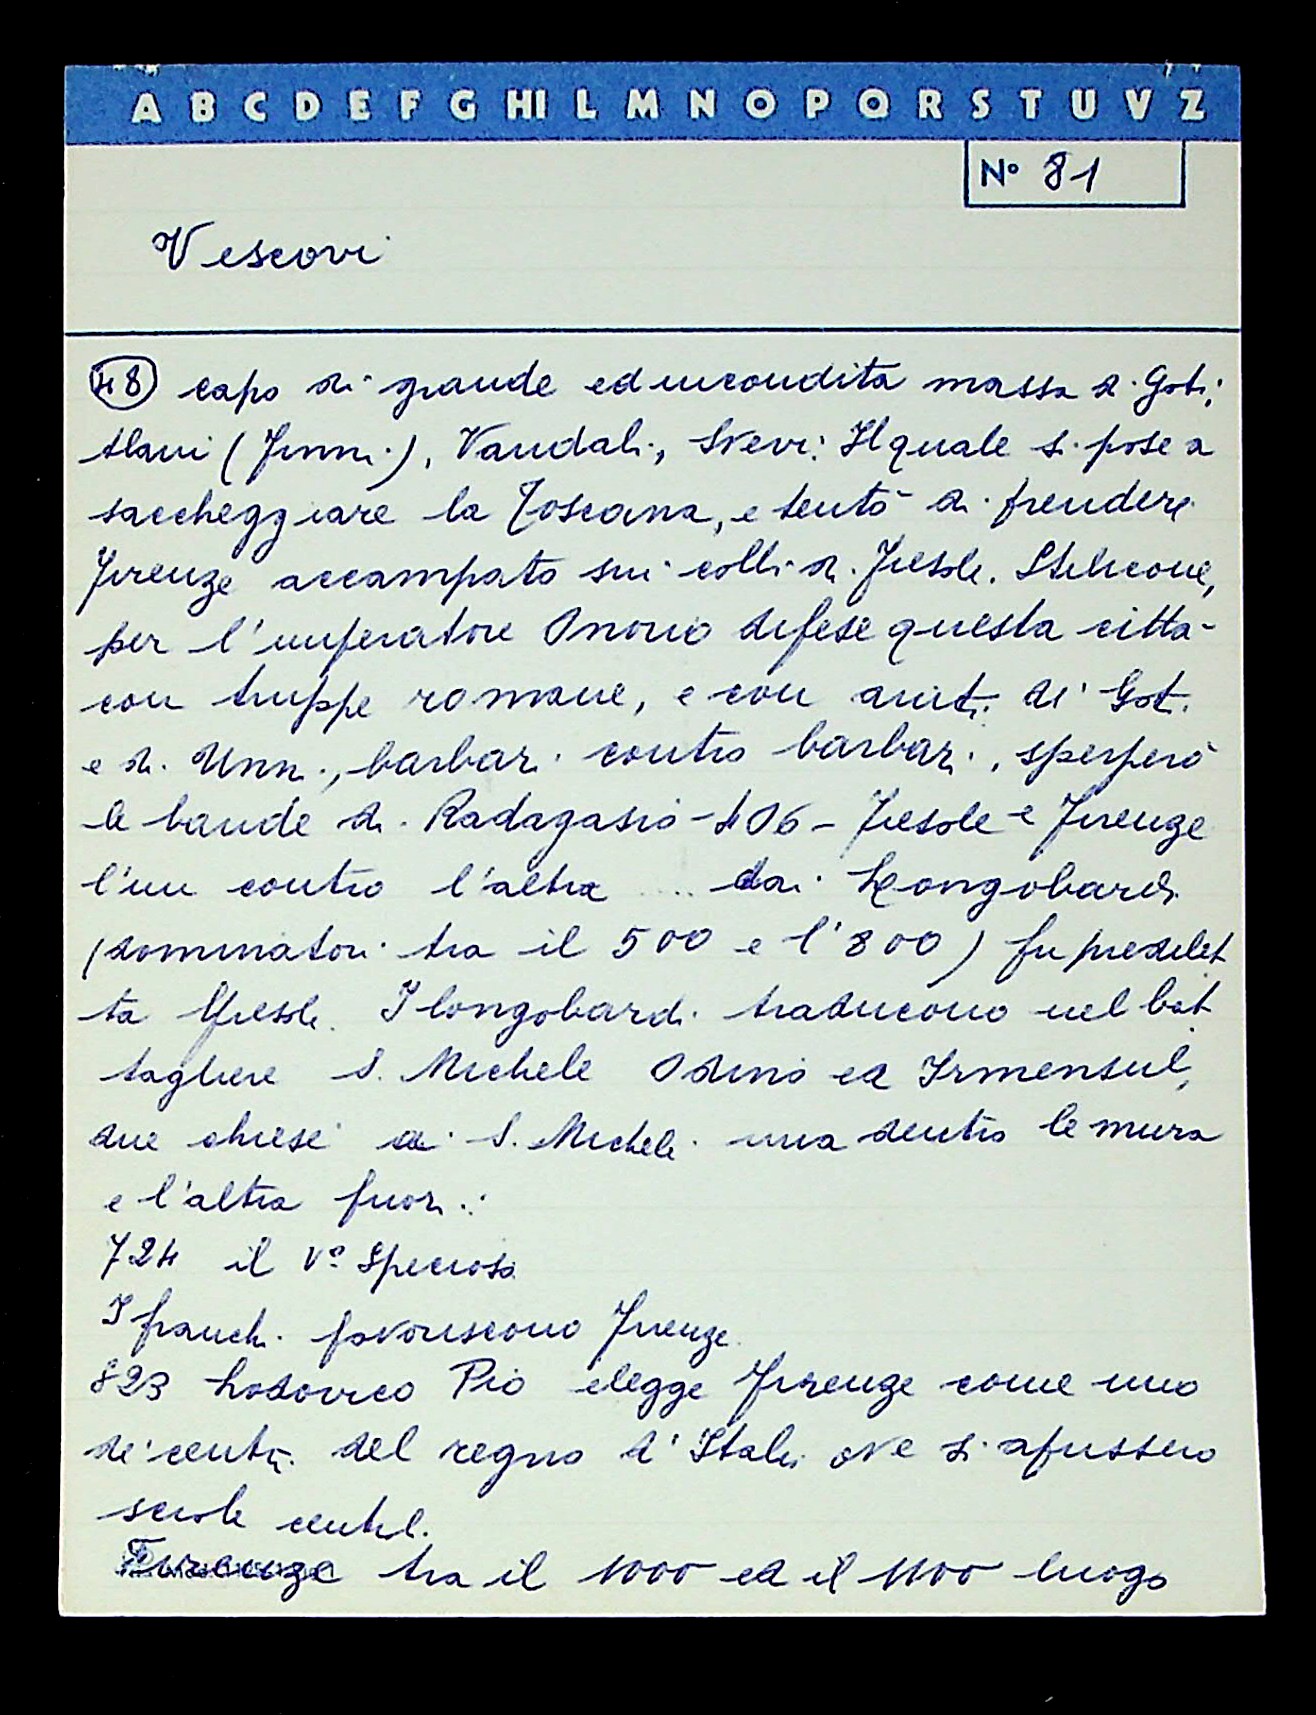 A B C D E F G HI L M N O P Q R S T U V Z
Nº 81
Vescovi
48 capo di grande ed incondita massa di Goti,
Alani (Unni), Vandali, Svevi: Il quale si pose a
saccheggiare la Toscana, e tentò di prendere
Firenze accampato sui colli di Fiesole. Stilicone,
per l'imperatore Onorio difese questa città
con truppe romane, e con aiuti di Goti
e di Unni, barbari contro barbari, sperperò
le bande di Radagasio - 406 - Fiesole e Firenze
l'un contro l'altra .... dai Longobardi
(dominatori tra il 500 e l'800) fu predilet
ta Fiesole. I longobardi traducono nel bat
tagliere S. Michele Odino ed Irmensul,
due chiese a S. Michele una dentro le mura
e l'altra fuori:
724 il Vº Specioso
I franchi favoriscono Firenze.
823 Lodovico Pio elegge Firenze come uno
dei centri del regno d'Italia ove si
scuole
Firenze tra il 1000 ed il 1100 luogo